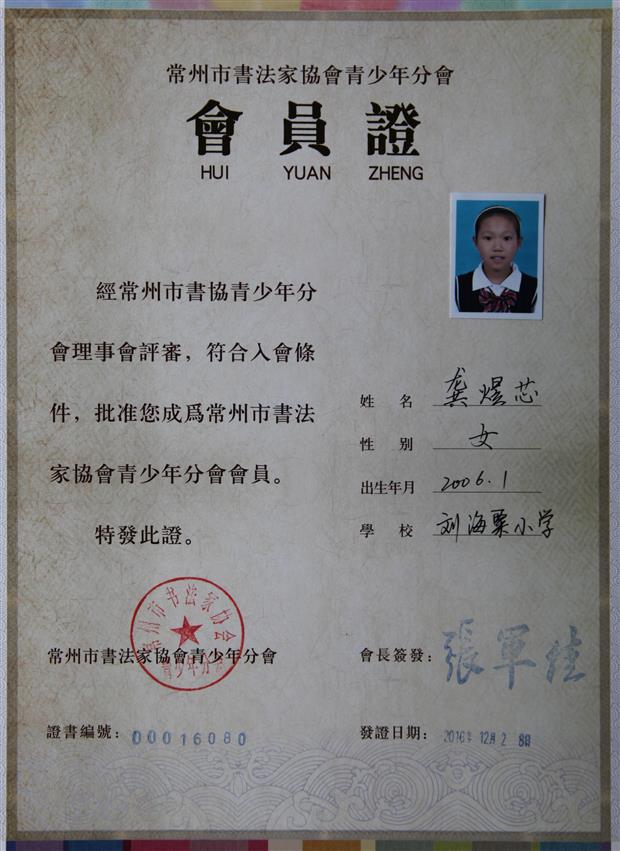 常州市書法家協會青少年分會
會員證
HUI YUAN ZHENG
經常州市書協青少年分
會理事會評審，符合入會條
件，批准您成爲常州市書法
家協會青少年分會會員。
特發此證。
姓 名 龚煜芯
性 别 女
出生年月 2006.1
學 校 刘海粟小学
常州市书法家协会
青少年分会
常州市書法家協會青少年分會
會長簽發：張軍佳
證書編號：00016080
發證日期：2016年12月28日